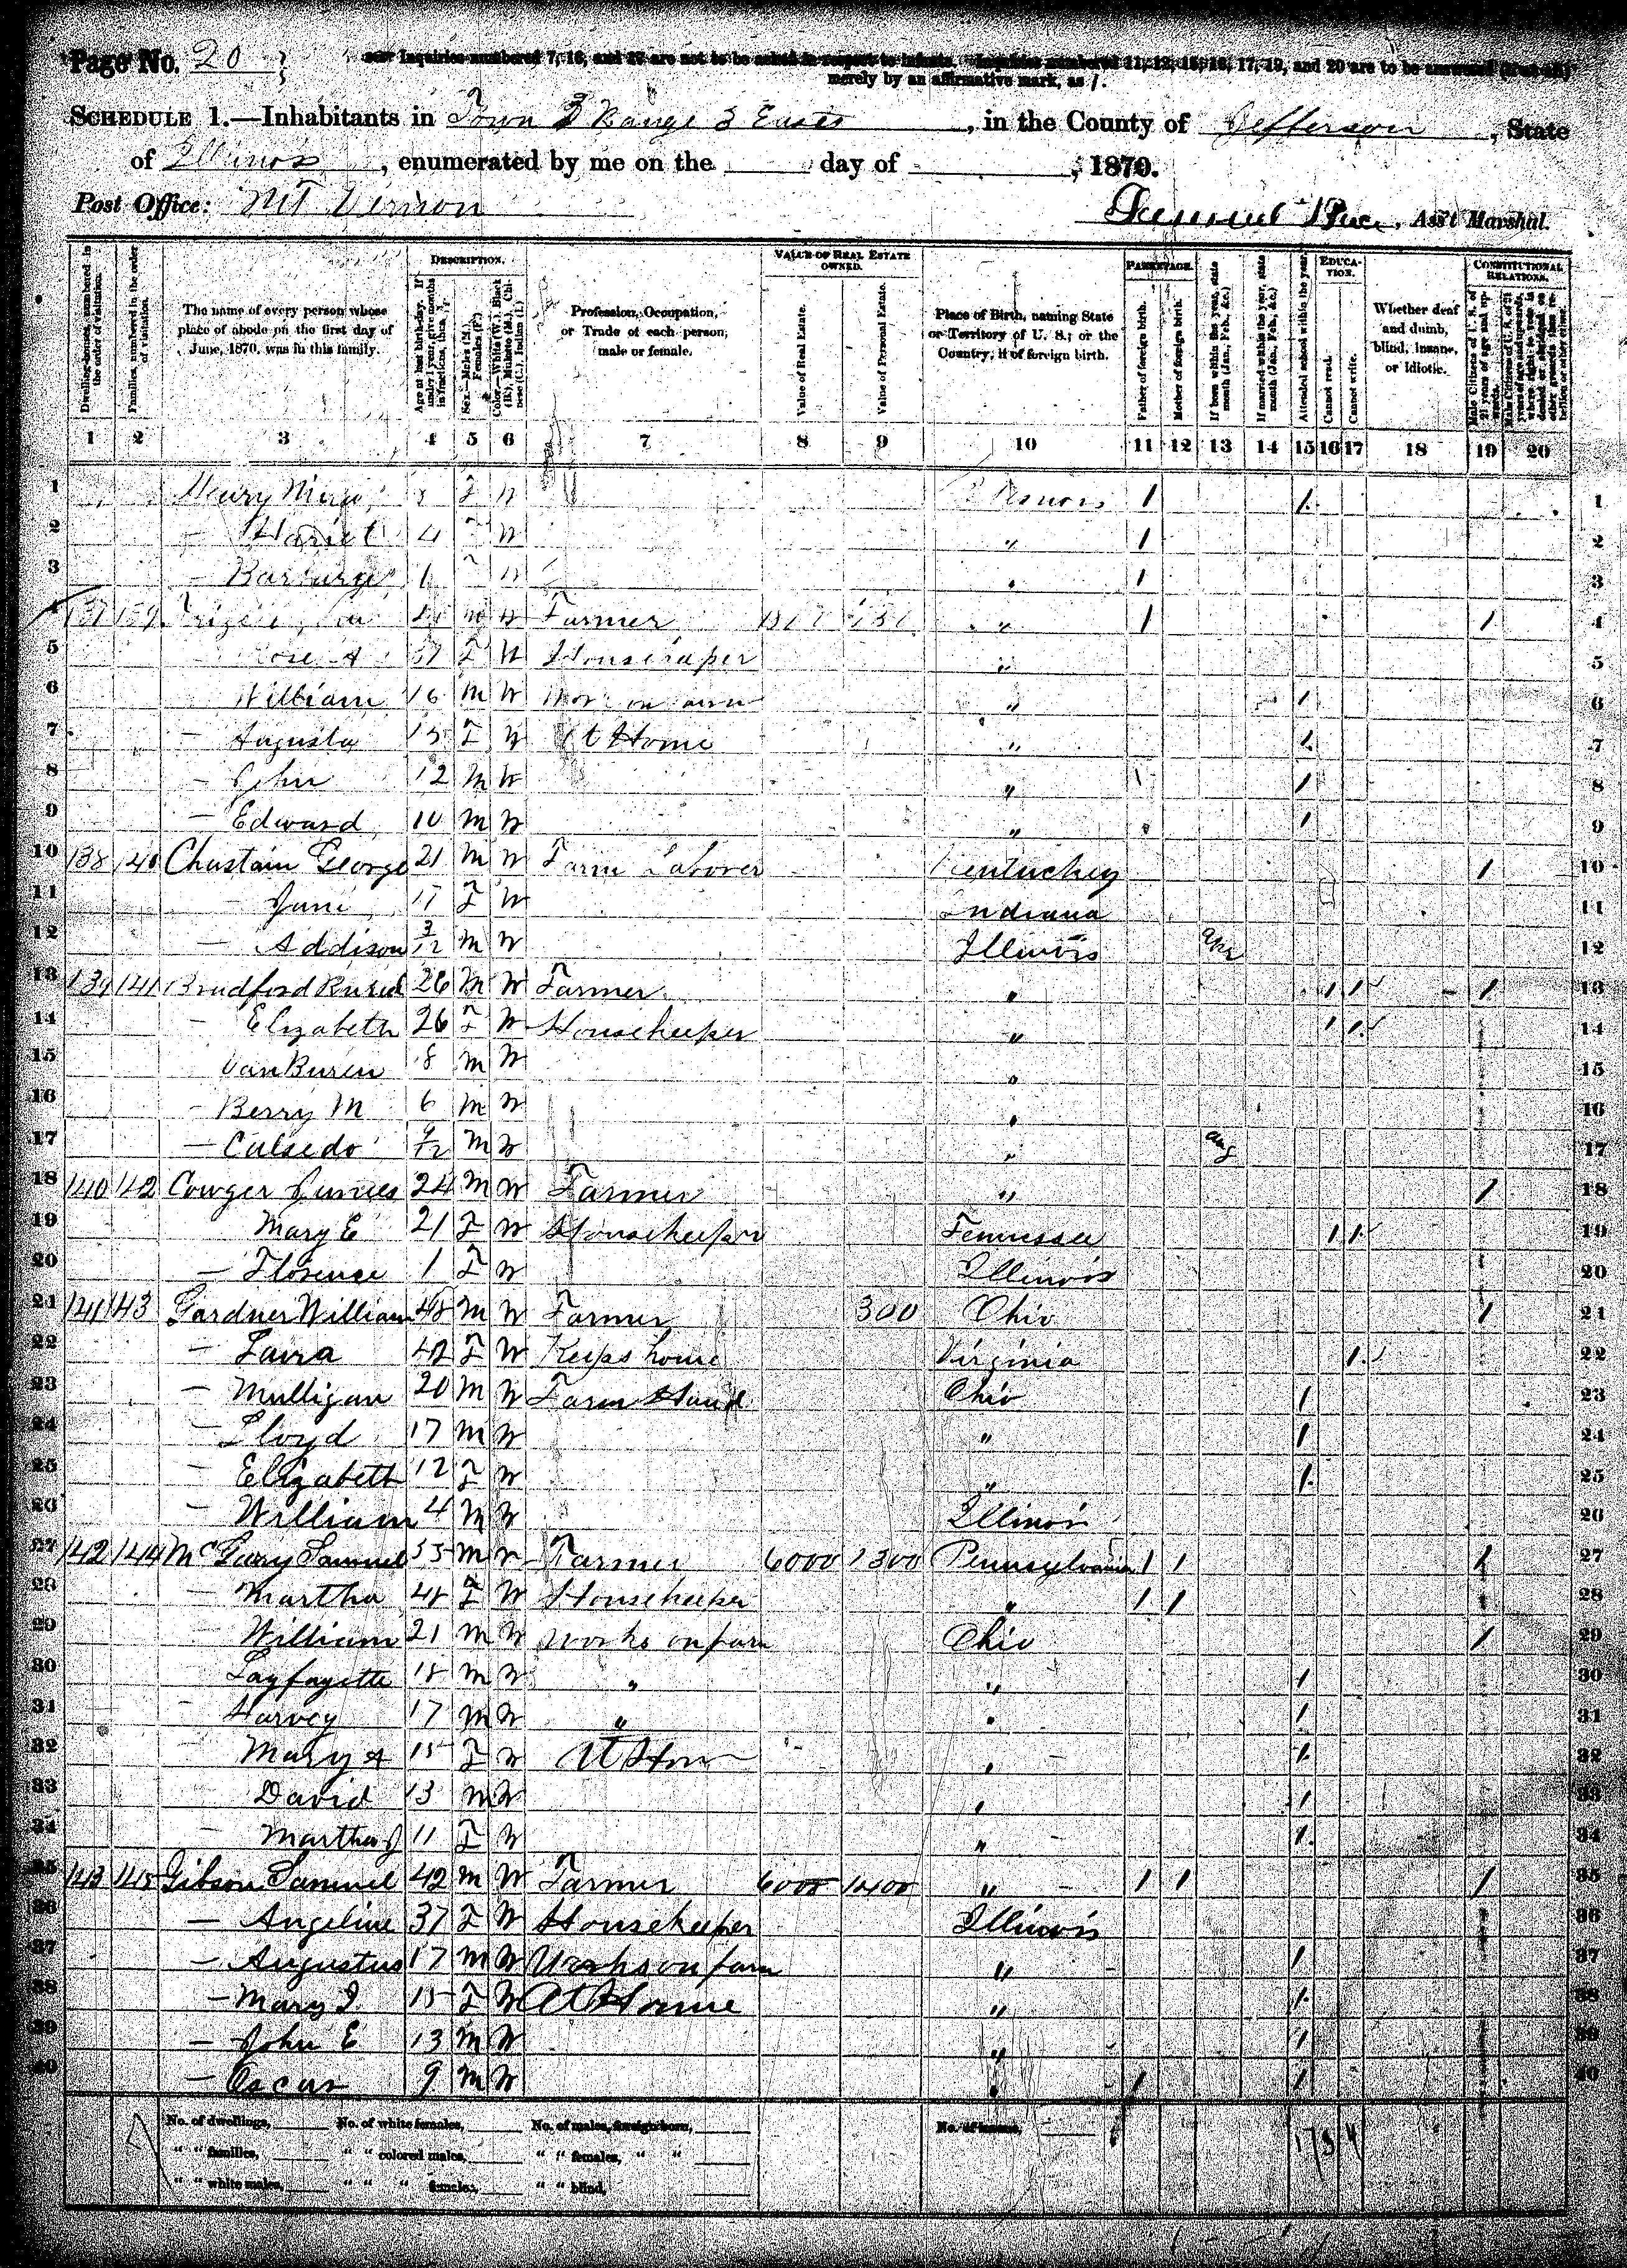 Page No. 20
Inquiries numbered 7, 16, and 17 are not to be asked in respect to infants. Inquiries numbered 11, 12, 15, 16, 17, 19, and 20 are to be answered (if at all)
merely by an affirmative mark, as /.
SCHEDULE 1.—Inhabitants in Town 3 Range 3 East, in the County of Jefferson, State
of Illinois, enumerated by me on the day of , 1870.
Post Office: Mt Vernon
Ass't Marshal.
Dwelling-houses, numbered in the order of visitation.
Families, numbered in the order of visitation.
The name of every person whose place of abode on the first day of June, 1870, was in this family.
DESCRIPTION.
Age at last birth-day. If under 1 year, give months in fractions, thus, 3/12
Sex.—Males (M.), Females (F.)
Color.—White (W.), Black (B.), Mulatto (M.), Chinese (C.), Indian (I.)
Profession, Occupation, or Trade of each person, male or female.
VALUE OF REAL ESTATE OWNED.
Value of Real Estate.
Value of Personal Estate.
Place of Birth, naming State or Territory of U. S.; or the Country, if of foreign birth.
PARENTAGE.
Father of foreign birth.
Mother of foreign birth.
If born within the year, state month (Jan., Feb., &c.)
If married within the year, state month (Jan., Feb., &c.)
Attended school within the year.
EDUCATION.
Cannot read.
Cannot write.
Whether deaf and dumb, blind, insane, or idiotic.
CONSTITUTIONAL RELATIONS.
Male Citizens of U. S. of 21 years of age and upwards.
1 2 3 4 5 6 7 8 9 10 11 12 13 14 15 16 17 18 19 20
1 F W 1 1 1
2 — Harriet 4 W " 1 2
3 — 1 W " 1 3
4 137 139 M W Farmer " 1 1 4
5 Rose A 37 F W Housekeeper " 5
6 William 16 M W " 1 6
7 — Augusta 15 F W At Home " 1 7
8 — John 12 M W " 1 1 8
9 — Edward 10 M W " 1 9
10 138 140 Chastain George 21 M W Farm Laborer Kentucky 1 10
11 — Jani 17 F W Indiana 11
12 — Addison 3/12 M W Illinois Apr 12
13 139 141 Bradford 26 M W Farmer " 1 1 1 13
14 — Elizabeth 26 F W Housekeeper " 1 1 14
15 VanBuren 8 M W " 15
16 — Berry M 6 M W " 16
17 — Calsedo 9/12 M W " Aug 17
18 140 142 Cowger James 24 M W Farmer " 1 18
19 Mary E 21 F W Housekeeper Tennessee 1 1 19
20 — Florence 1 F W Illinois 20
21 141 143 Gardner William 48 M W Farmer 300 Ohio 1 21
22 — Laura 42 F W Keeps home Virginia 1 22
23 — Mulligan 20 M W Farm Hand Ohio 1 23
24 — Lloyd 17 M W " 1 24
25 — Elizabeth 12 F W " 1 25
26 — William 4 M W Illinois 26
27 142 144 McGary Samuel 55 M W Farmer 6000 1300 Pennsylvania 1 1 1 27
28 — Martha 48 F W Housekeeper " 1 1 28
29 William 21 M W works on farm Ohio 1 29
30 Layfayette 18 M W " " 1 30
31 — Harvey 17 M W " " 1 31
32 — Mary A 15 F W At Home " 1 32
33 David 13 M W " 1 33
34 — Martha J 11 F W " 1 34
35 143 145 Gibson Samuel 42 M W Farmer 6000 1400 " 1 1 1 35
36 — Angeline 37 F W Housekeeper Illinois 36
37 — Augustus 17 M W Works on farm " 1 37
38 — Mary J 15 F W At Home " 1 38
39 — John E 13 M W " 1 39
40 — Oscar 9 M W " 1 1 40
No. of dwellings, No. of white females, No. of males, foreign born, No. of insane,
" " families, " " colored males, " " females, " "
" " white males, " " " females, " " blind,